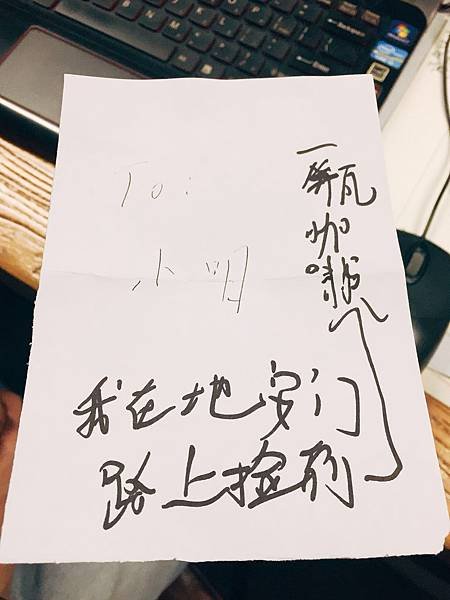 To:
小明
我在地安门
路上捡到
一瓶咖啡